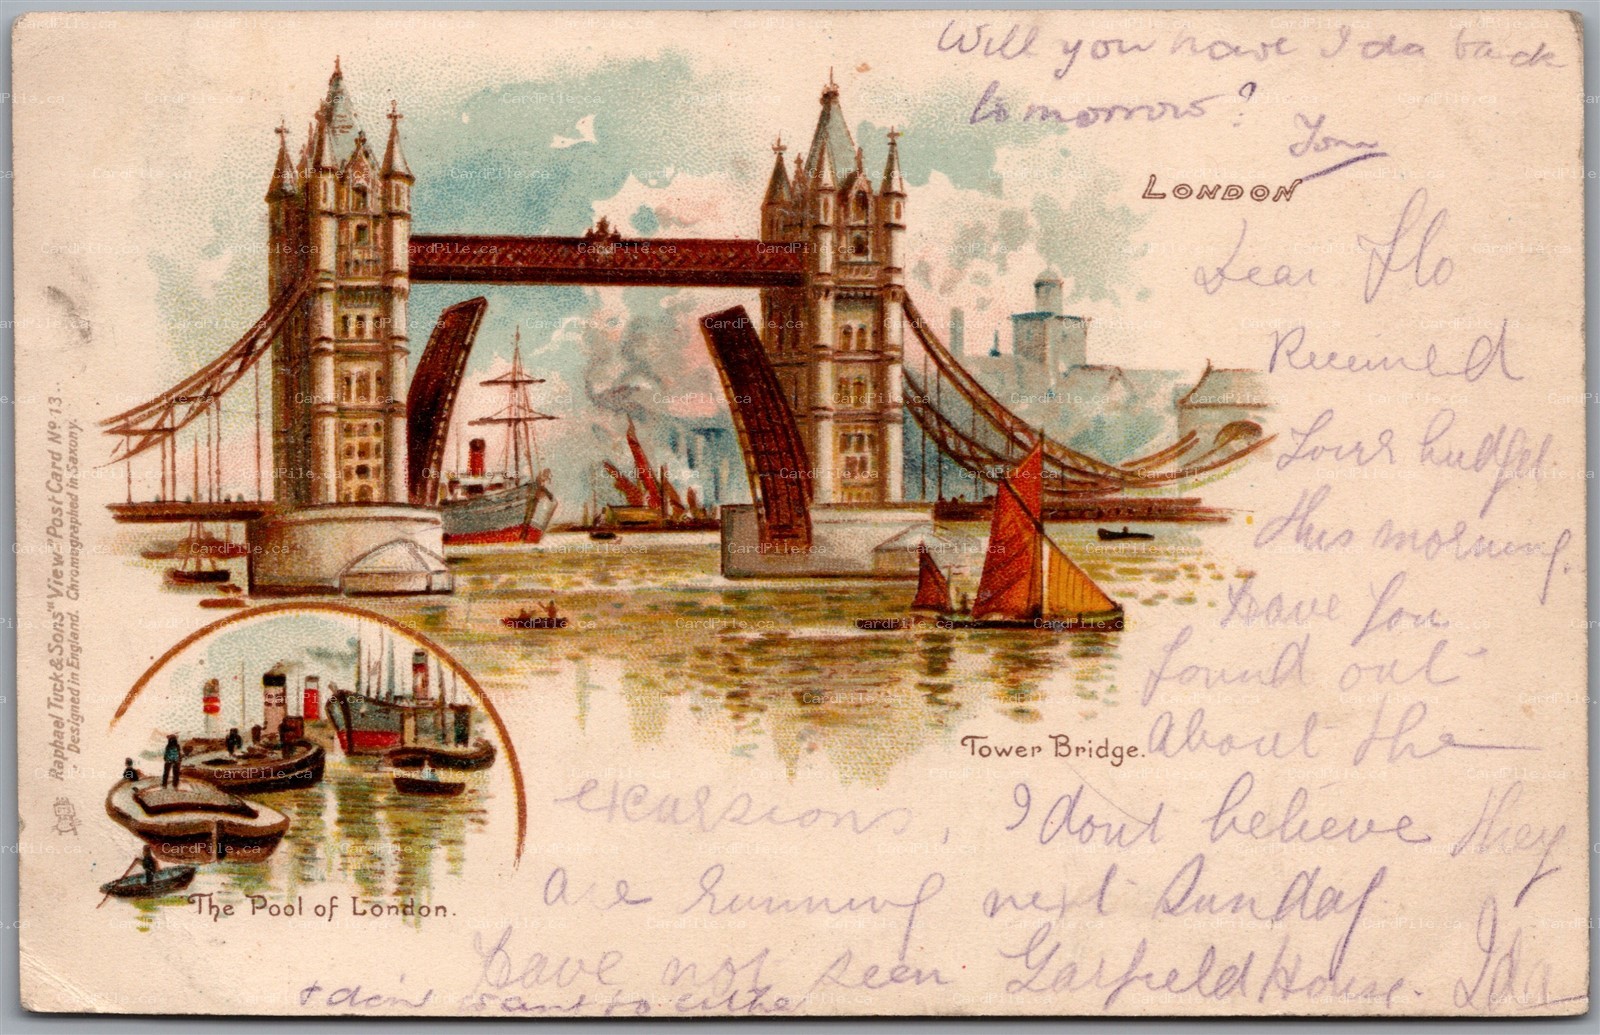 Will you have Ida back
tomorrow?
Tom
LONDON
Dear Flo
Received
Your budget
this morning.
Have you
found out
about the
excursions, I dont believe they
are running next Sunday
Have not seen Garfield House. Ida
+ don't want to either
Tower Bridge.
The Pool of London.
Raphael Tuck & Sons' "View" Post Card No 13.
Designed in England. Chromographed in Saxony.
CardPile.ca